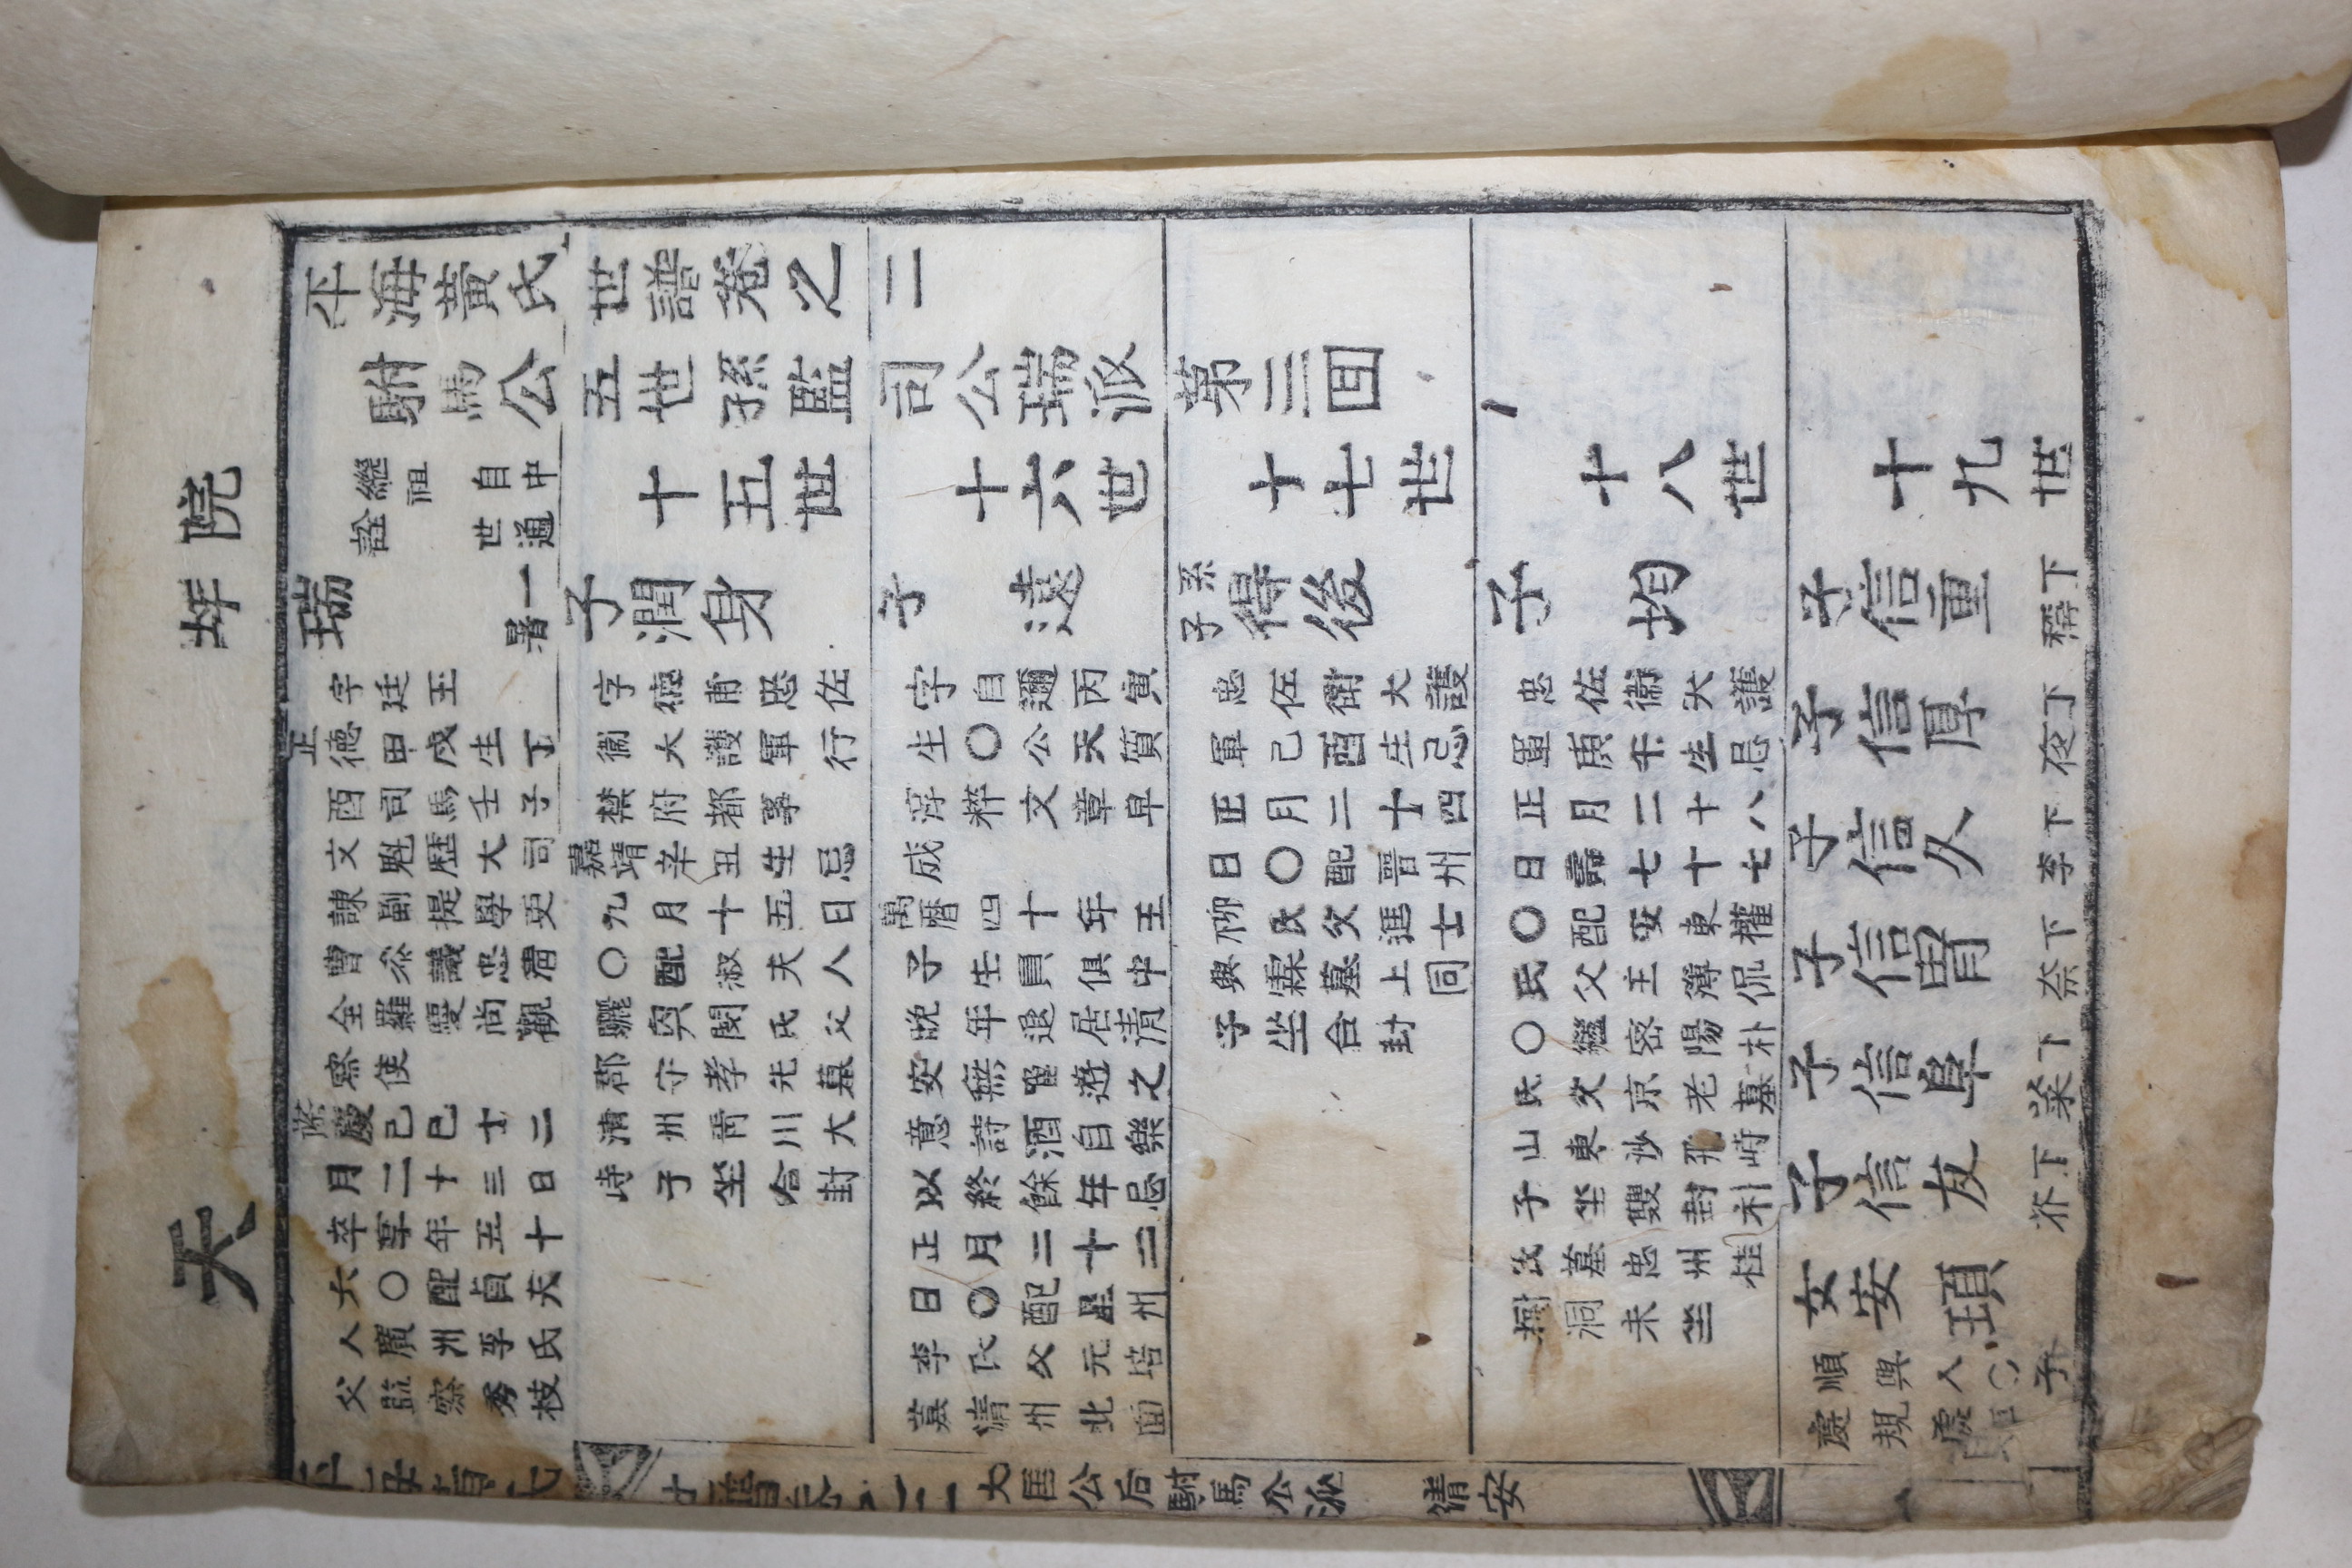 院
垶
天
平海黃氏世譜卷之二
駙馬公五世孫監司公瑞派 第三回
繼祖 自中
詮 世通
十五世
十六世
十七世
十八世
十九世
瑞
一
字廷玉
正德甲戌生丁
酉司馬壬子
文魁歷大司
諫副提學吏
曹叅議忠淸
全羅慶尚觀
察使
慶己巳十二
月二十三日
卒享年五十
六〇配貞夫
人廣州李氏
父監察秀枝
子潤身
字德甫忠佐
衞大護軍行
禁府都事
嘉靖辛丑生忌
九月十五日
〇配淑夫人
驪興閔氏父
郡守孝先墓
淸州靑川大
峙子坐合封
子遠
字自邇丙寅
生〇公天質
淳粹文章早
成
萬曆四十年壬
子生員俱中
晚年退居淸
安無留遊之
意詩酒自樂
以終餘年忌
正月二十二
日〇配星州
李氏父元培
墓淸州北面
系子得後
忠佐衛大護
軍己酉生忌
正月二十四
日〇配晉州
柳氏父進士
興霖墓上同
子坐合封
子均
忠佐衞大護
軍庚午生忌
正月二十八
日壽七十七
〇配安東權
氏父主簿侃
〇繼密陽朴
氏父京老墓
山東沙飛峙
子坐雙封朴
氏墓忠州桂
樹洞未坐
子信重
下稱
子信厚
下夜
子信久
下李
子信冑
下奈
子信阜
下菜
子信友
下芥
女安頊
順興人〇子
處規處
世譜卷之二 大匡公后駙馬公派 淸安